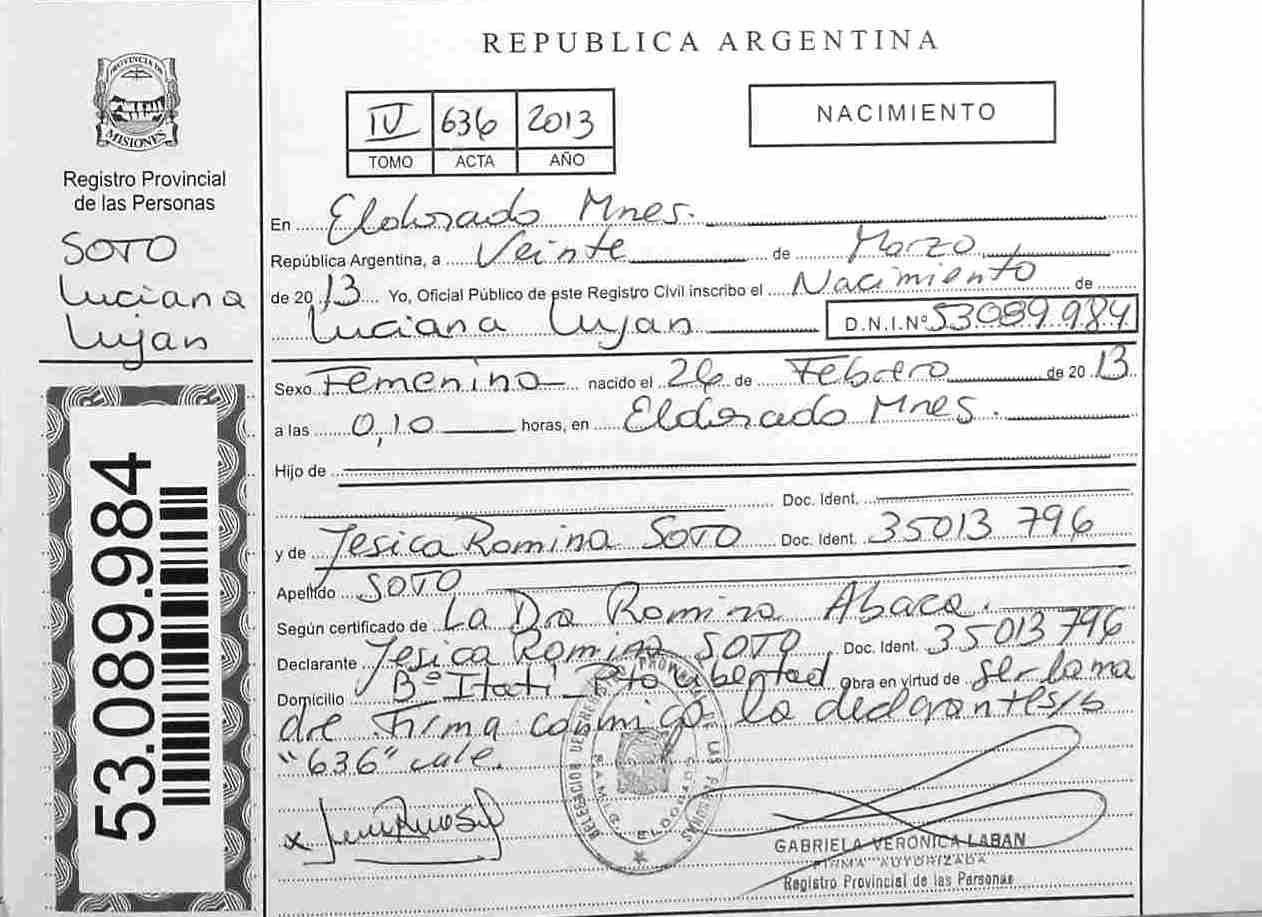 REPUBLICA ARGENTINA
PROVINCIA DE
MISIONES
Registro Provincial
de las Personas
SOTO
Luciana
Lujan
53.089.984
IV 636 2013
TOMO ACTA AÑO
NACIMIENTO
En Eldorado Mnes.
República Argentina, a Veinte de Marzo
de 2013 Yo, Oficial Público de este Registro Civil inscribo el Nacimiento de
Luciana Lujan D.N.I.Nº 53089.984
Sexo Femenino nacido el 26 de Febrero de 2013
a las 0,10 horas, en Eldorado Mnes.
Hijo de
Doc. Ident.
y de Jesica Romina SOTO Doc. Ident. 35013 796
Apellido SOTO
Según certificado de La Dra Romina Abaca.
Declarante Jesica Romina SOTO Doc. Ident. 35013 796
Domicilio Bº Itatí Pto Libertad Obra en virtud de ser la ma
dre Firma conmigo la declarante s/b
"636" vale.
x
GABRIELA VERONICA LABAN
FIRMA AUTORIZADA
Registro Provincial de las Personas